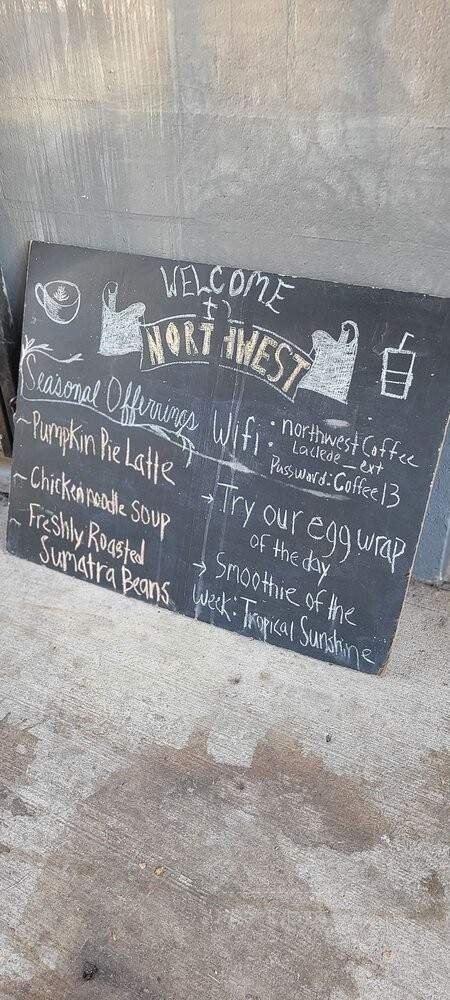 WELCOME
to
NORTHWEST
Seasonal Offerings
~Pumpkin Pie Latte
~Chicken noodle soup
~Freshly Roasted
Sumatra Beans
Wifi: northwest Coffee
Laclede_ext
Password: Coffee13
→ Try our egg wrap
of the day
→ Smoothie of the
week: Tropical Sunshine